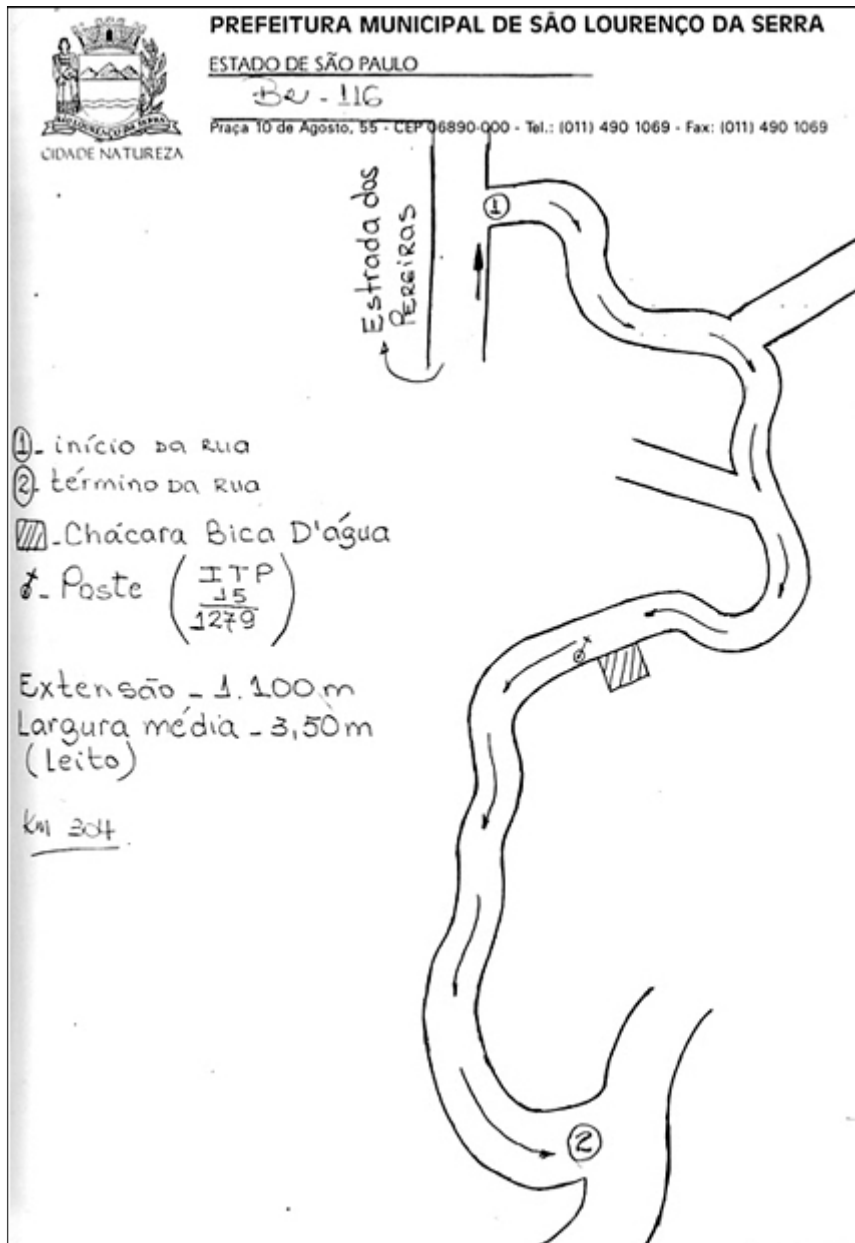 PREFEITURA MUNICIPAL DE SÃO LOURENÇO DA SERRA
ESTADO DE SÃO PAULO
BR - 116
Praça 10 de Agosto, 55 - CEP 06890-000 - Tel.: (011) 490 1069 - Fax: (011) 490 1069
SÃO LOURENÇO DA SERRA
CIDADE NATUREZA
Estrada das
PEREIRAS
1
1 - início DA RUA
2 - término DA RUA
- Chácara Bica D'água
- Poste (ITP
15
1279)
Extensão - 1.100 m
Largura média - 3,50 m
(leito)
Km 304
2